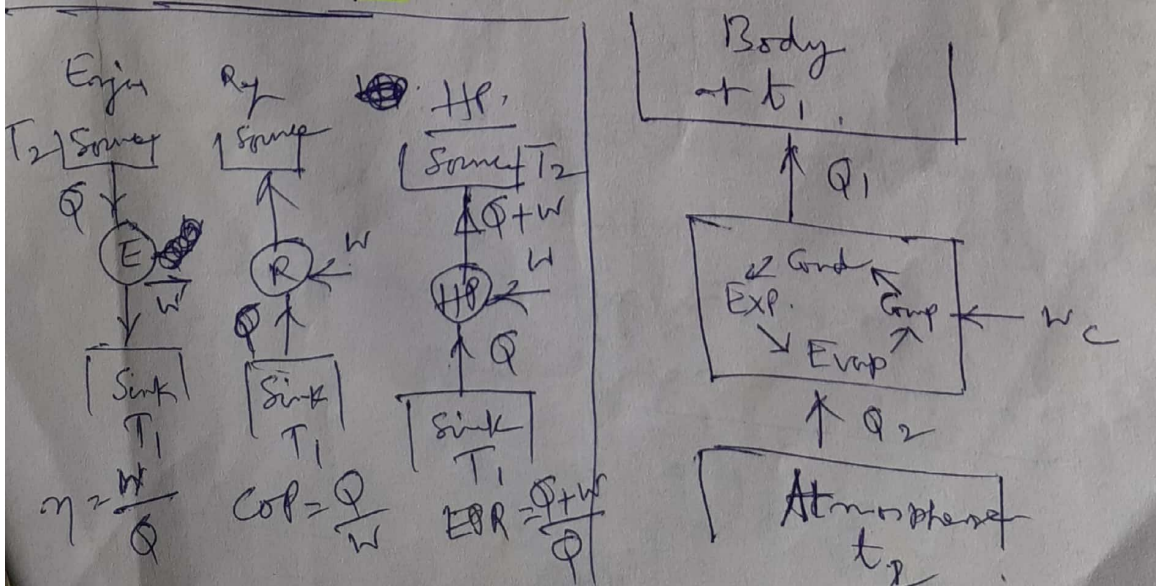 Engin
T2 Source
Q
E
W
Sink
T1
η = W/Q
Ref
Source
R
W
Q
Sink
T1
COP = Q/W
HP.
Source T2
Q+W
W
HP
Q
Sink
T1
EPR = Q+W/Q
Body
at t1
Q1
Cond
Exp.
Comp
Evap
Wc
Q2
Atmosphere
t2